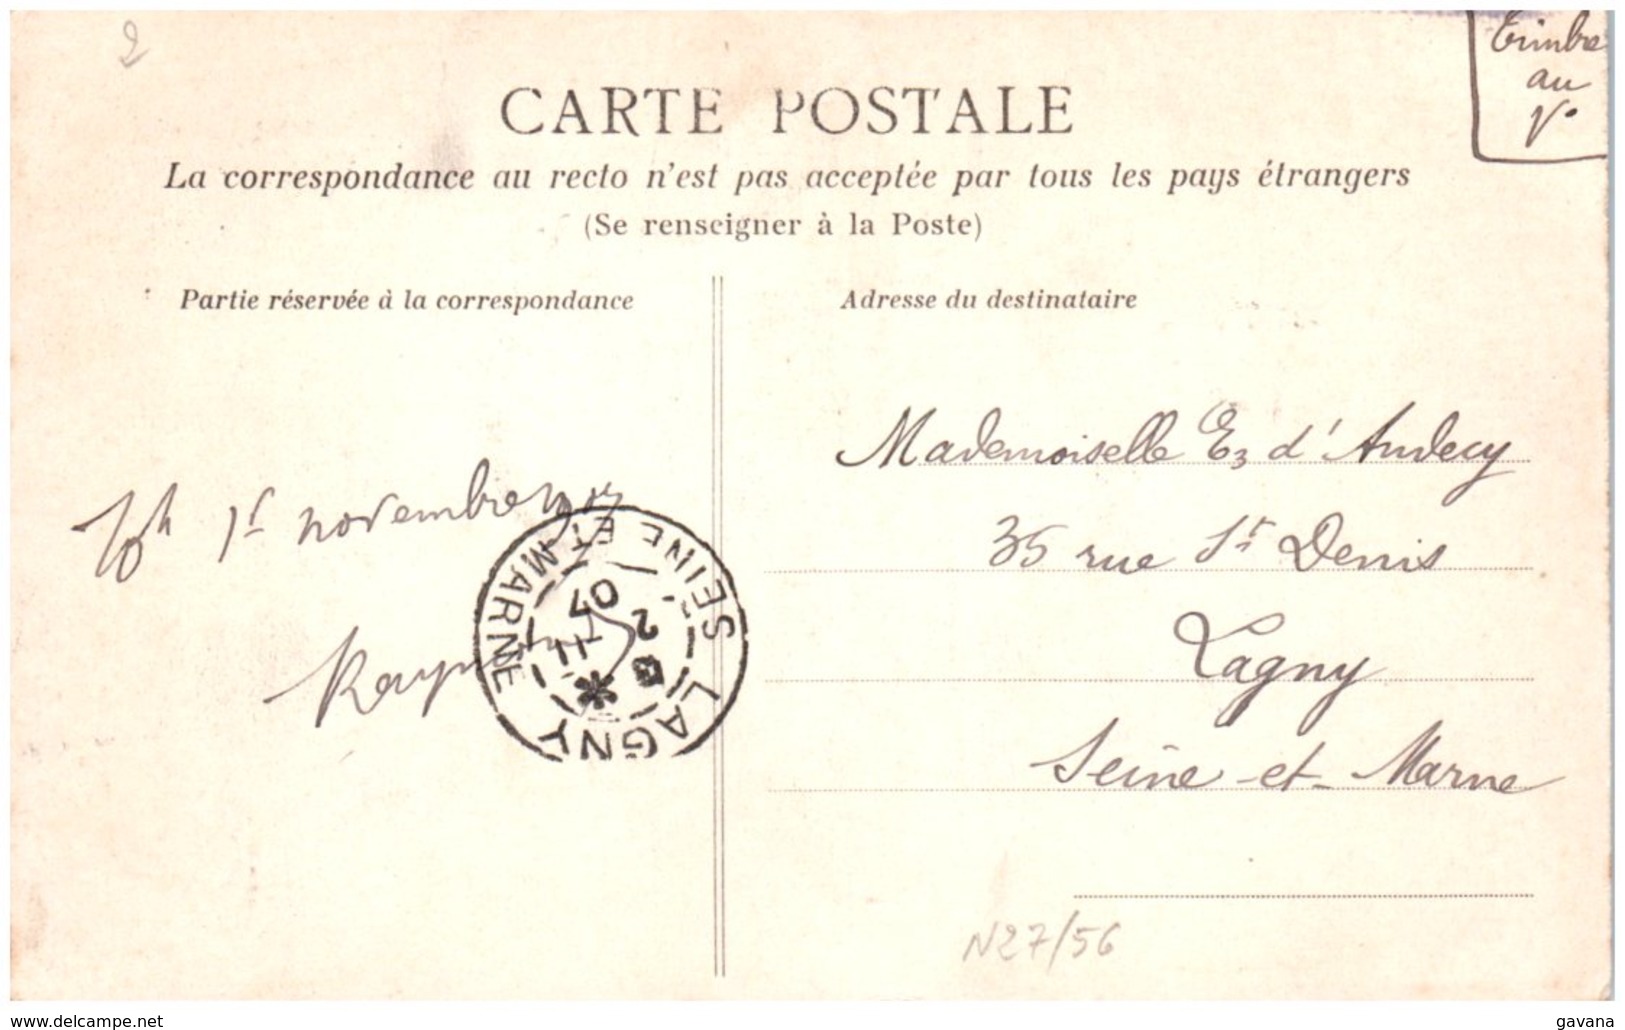 2
Timbre
au
V°
CARTE POSTALE
La correspondance au recto n'est pas acceptée par tous les pays étrangers
(Se renseigner à la Poste)
Partie réservée à la correspondance
Adresse du destinataire
1r novembre
Mademoiselle Ez d'Andecy
35 rue St Denis
Lagny
Seine-et-Marne
LAGNY
SEINE ET MARNE
2
11
07
N27/56
www.delcampe.net
gavana